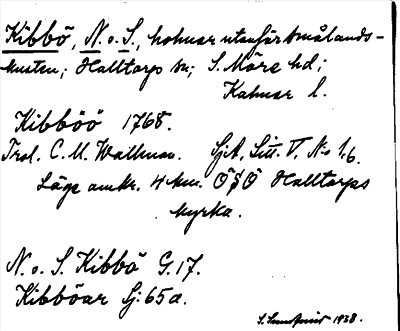 Kibbö, N. o. S., holmar utanför Smålands-
kusten; Halltorps sn; S. Möre hd;
Kalmar l.
Kibböö 1768.
Trol. C. M. Wallman. SjA, Litt. V, No 1,6.
Läge omkr. 4 km. ÖSÖ Halltorps
kyrka.
N. o. S. Kibbö G. 17.
Kibböar Sj: 65 a.
1938.